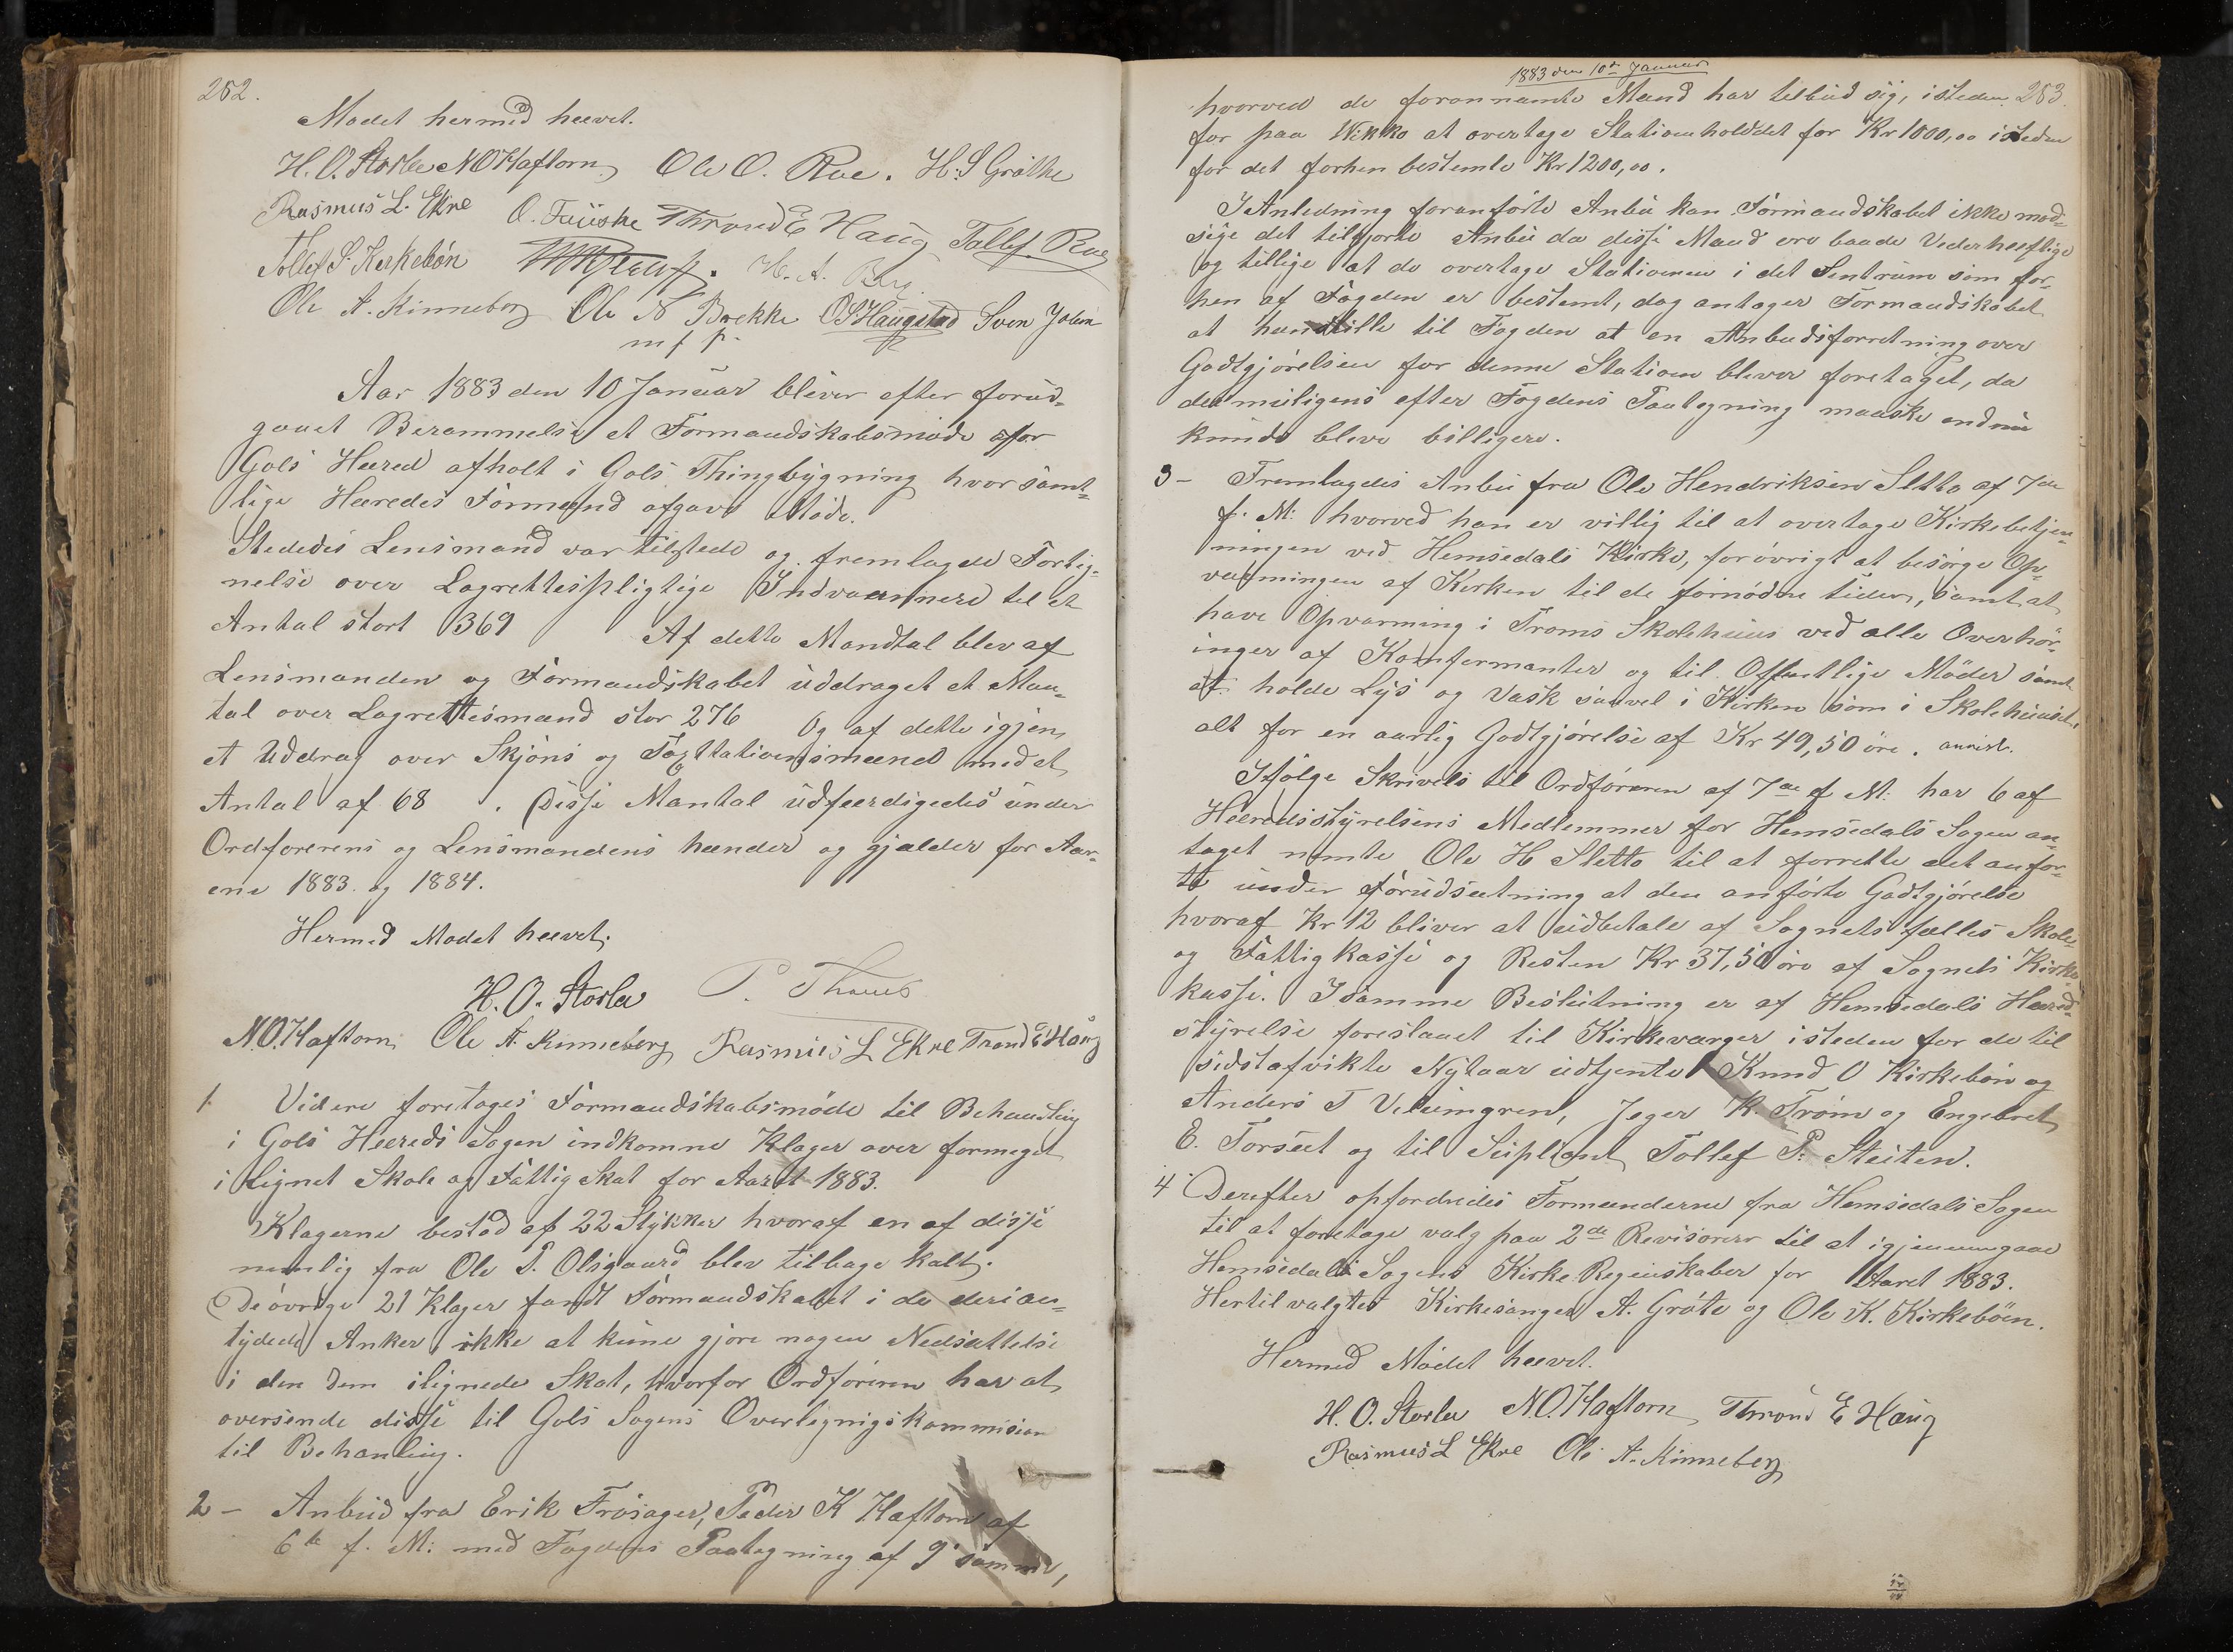 252.
Modet hermed hævet.
H. O. Storla N O Haftorn Ole O. Roe. H. S Gröthe
Rasmus L. Ekre O. Fauske Thrond E Haug Tollef Roe
Tollef S. Kirkebön H. A. Berg.
Ole A. Kinneberg Ole N Bække O S Haugstad Sven Jolein
m f p.
Aar 1883 den 10 Januar bliver efter forud-
gaaet Berammelse et Formandskabsmøde for
Gols Hered afholt i Gols Thingbygning hvor samt-
lige Heredes Formænd afgave Møde.
Stededes Lensmand var tilstede og fremlagde Forteg-
nelse over Lagrettespligtige Indvaannere til et
Antal stort 369 Af dette Mandtal blev af
Lensmanden og Formandskabet uddraget et Man-
tal over Lagrettesmænd stor 276 Og af dette igjen
et Uddrag over Skjöns og Taxtationsmænd med et
Antal af 68 . Disse Mantal udfærdigedes under
Ordførerens og Lensmandens hænder og gjælder for Aar-
ene 1883 og 1884.
Hermed Modet hævet.
H. O. Storla
N. O. Haftorn Ole A. Kinneberg Rasmus L Ekre Trond E Haug
1. Videre foretoges Formandskabsmöde til Behanling
i Gols Hereds Sogen indkomne Klager over formeget
i Lignet Skole og Fattig Skat for Aaret 1883.
Klagerne bestod af 22 Stykker hvoraf en af disse
nemlig fra Ole P. Olsgaard blev tilbage kalt.
De övrige 21 Klager fandt Formandskabet i de deri an-
tydede Anker ikke at kune gjöre nogen Nedsættelse
i den dem ilignede Skat, hvorfor Ordföreren har at
oversende disse til Gols Sogens Overlignigskommision
til Behanling.
2 - Anbud fra Erik Frösager, Peder K Haftorn af
6te f. M: med Fogdens Paategning af 9' samme,
1883 den 10de Januar
hvorved de forannævnte Mænd har tilbud sig, isteden 253.
for paa Wikko at overtage Stationholdet for Kr 1000,00 isteden
for det forhen bestemte Kr 1200,00.
I Anledning foranförte Anbu kan Formandskabet ikke mod-
sige det tilgjorte Anbu da disse Mænd ere baade Vederhæftige
og tillige at de overtage Stationen i det Sentrum som for-
hen af Fogden er bestemt, dog antager Formandskabet
at henstille til Fogden at en Anbudsforretning over
Godtgjörelsen for denne Station blever foretaget, da
den muligens efter Fogdens Paategning maaske endnu
kunde bleve billigere.
3 - Fremlagdes Anbu fra Ole Hendriksen Sletto af 7de
f. M: hvorved han er villig til at overtage Kirkebetjen-
ningen ved Hemsedals Kirke, forövrigt at besörge Op-
varmningen af Kirken til de fornödne tider, samt at
have Opvarming i Troms Skolehuus ved alle Overhör-
inger af Komfermanter og til Offentlige Möder samt
at holde Lys og Vask saavel i Kirken som i Skolehuuset,
alt for en aarlig Godtgjörelse af Kr 49,50 öre.
Ifölge Skrivels til Ordföreren af 7de f M: har 6 af
Heredsstyrelsens Medlemmer for Hemsedals Sogen an-
taget nemte Ole H Sletto til at forrette det anfor-
te under Forudsætning at den anförte Godtgjörelse
hvoraf Kr 12 bliver at udbetale af Sognets fælles Skole-
og Fattigkasse og Resten Kr 37,50 öre af Sognets Kirke-
kasse. I samme Beslutning er af Hemsedals Hered-
styrelse foreslaaet til Kirkeværger isteden for de til
sidstafvikte Nytaar udtjente Knud O Kirkebön og
Anders T Ulsimgren, Jeger K. Tröm og Engebret
E. Torset og til Suplient Tollef P. Steiten.
4 Derefter opfordredes Formænderne fra Hemsedals Sogen
til at foretage valg paa 2de Revisorer til at igjennemgaae
Hemsedals Sogens Kirke Regnskaber for Aaret 1883.
Hertil valgtes Kirkesanger A. Gröte og Ole K. Kirkeböen.
Hermed Mödet hævet.
H. O. Storla N. O. Haftorn Thrond E Haug
Rasmus L Ekre Ole A. Kinneberg